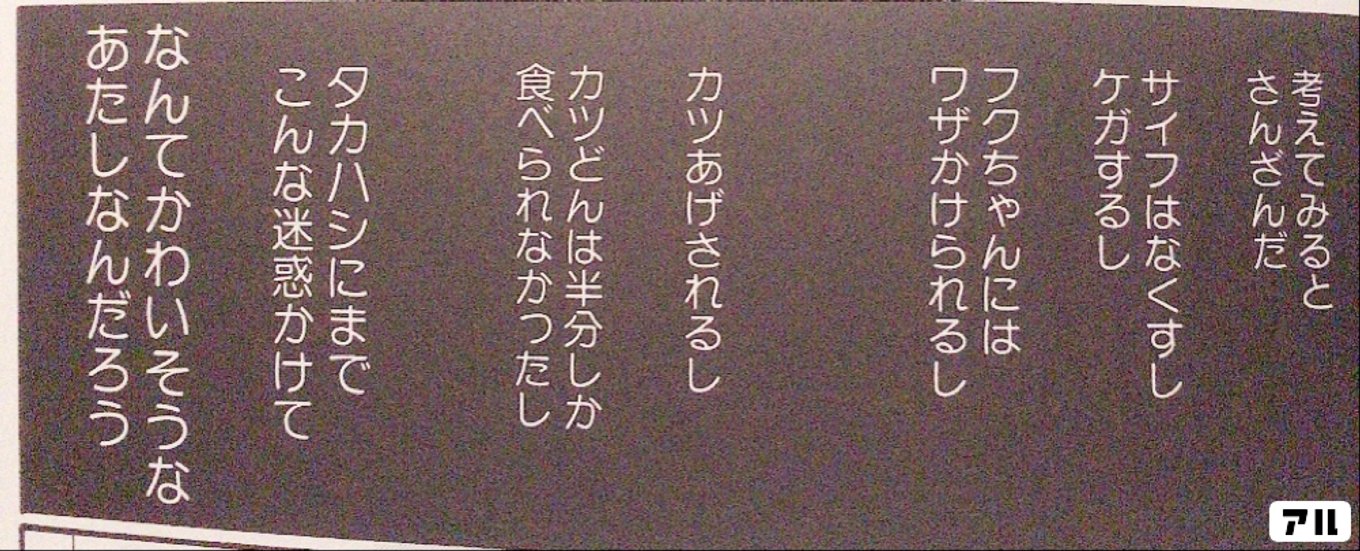 考えてみると
さんざんだ
サイフはなくすし
ケガするし
フクちゃんには
ワザかけられるし
カツあげされるし
カツどんは半分しか
食べられなかったし
タカハシにまで
こんな迷惑かけて
なんてかわいそうな
あたしなんだろう
アル